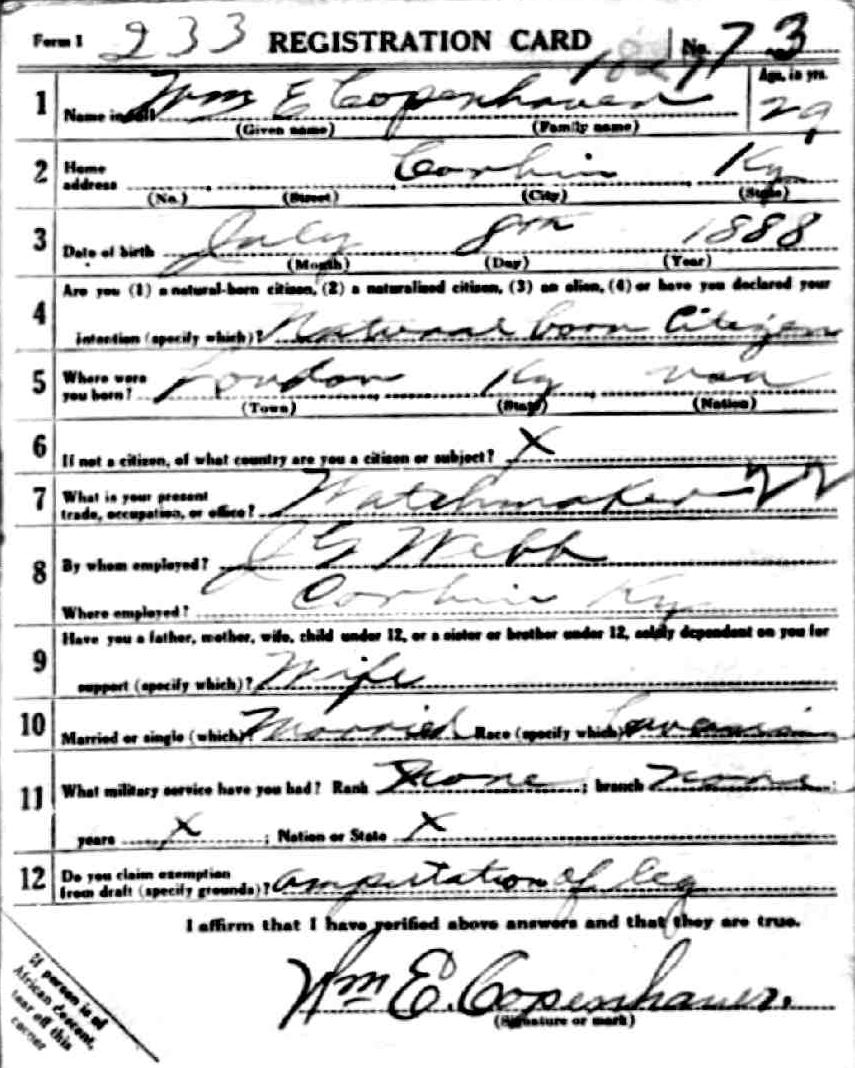 Form 1 233 REGISTRATION CARD No. 73
1 Name in full Wm E Copenhaver Age, in yrs. 29
(Given name) (Family name)
2 Home address Corbin Ky
(No.) (Street) (City) (State)
3 Date of birth July 8th 1888
(Month) (Day) (Year)
4 Are you (1) a natural-born citizen, (2) a naturalized citizen, (3) an alien, (4) or have you declared your
intention (specify which)? Natural born Citizen
5 Where were you born? London Ky
(Town) (State) (Nation)
6 If not a citizen, of what country are you a citizen or subject? X
7 What is your present trade, occupation, or office? Watchmaker 22
8 By whom employed? J G Webb
Where employed? Corbin Ky
9 Have you a father, mother, wife, child under 12, or a sister or brother under 12, solely dependent on you for
support (specify which)? Wife
10 Married or single (which)? Married Race (specify which)?
11 What military service have you had? Rank None ; branch None ;
years X ; Nation or State X
12 Do you claim exemption from draft (specify grounds)? amputation of leg
I affirm that I have verified above answers and that they are true.
Wm E. Copenhaver.
(Signature or mark)
If person is of
African descent,
tear off this
corner